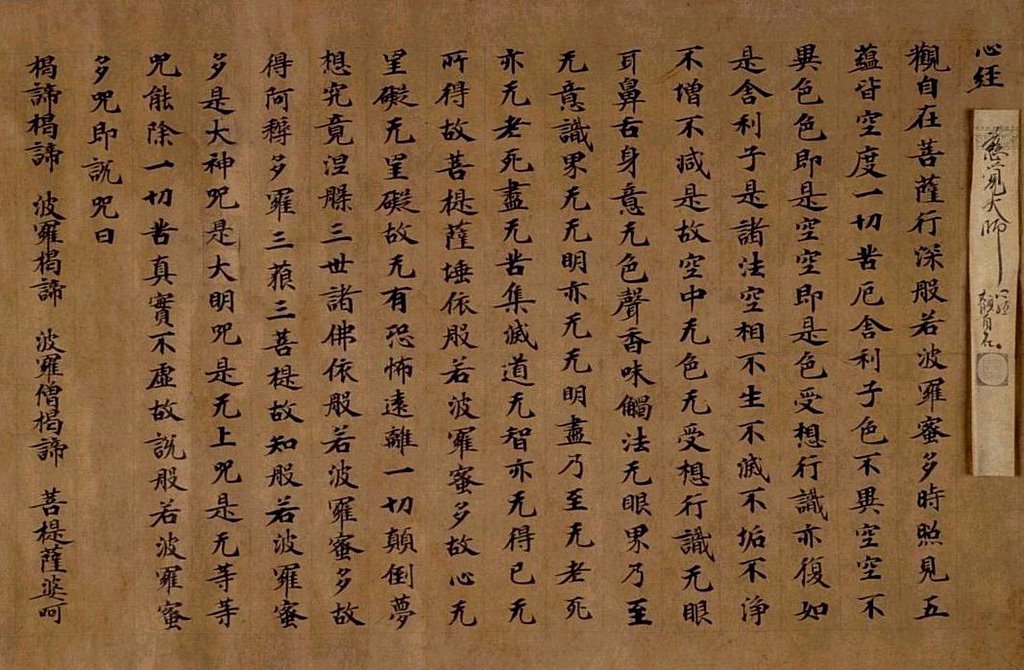 心経
慈覚大師
心経
觀自在
觀自在菩薩行深般若波羅蜜多時照見五
蘊皆空度一切苦厄舍利子色不異空空不
異色色即是空空即是色受想行識亦復如
是舍利子是諸法空相不生不滅不垢不淨
不憎不減是故空中无色无受想行識无眼
耳鼻舌身意无色聲香味觸法无眼界乃至
无意識界无无明亦无无明盡乃至无老死
亦无老死盡无苦集滅道无智亦无得已无
所得故菩提薩埵依般若波羅蜜多故心无
罣礙无罣礙故无有恐怖遠離一切顛倒夢
想究竟涅槃三世諸佛依般若波羅蜜多故
得阿耨多羅三藐三菩提故知般若波羅蜜
多是大神咒是大明咒是无上咒是无等等
咒能除一切苦真實不虛故說般若波羅蜜
多咒即說咒曰
揭諦揭諦 波羅揭諦 波羅僧揭諦 菩提薩婆呵